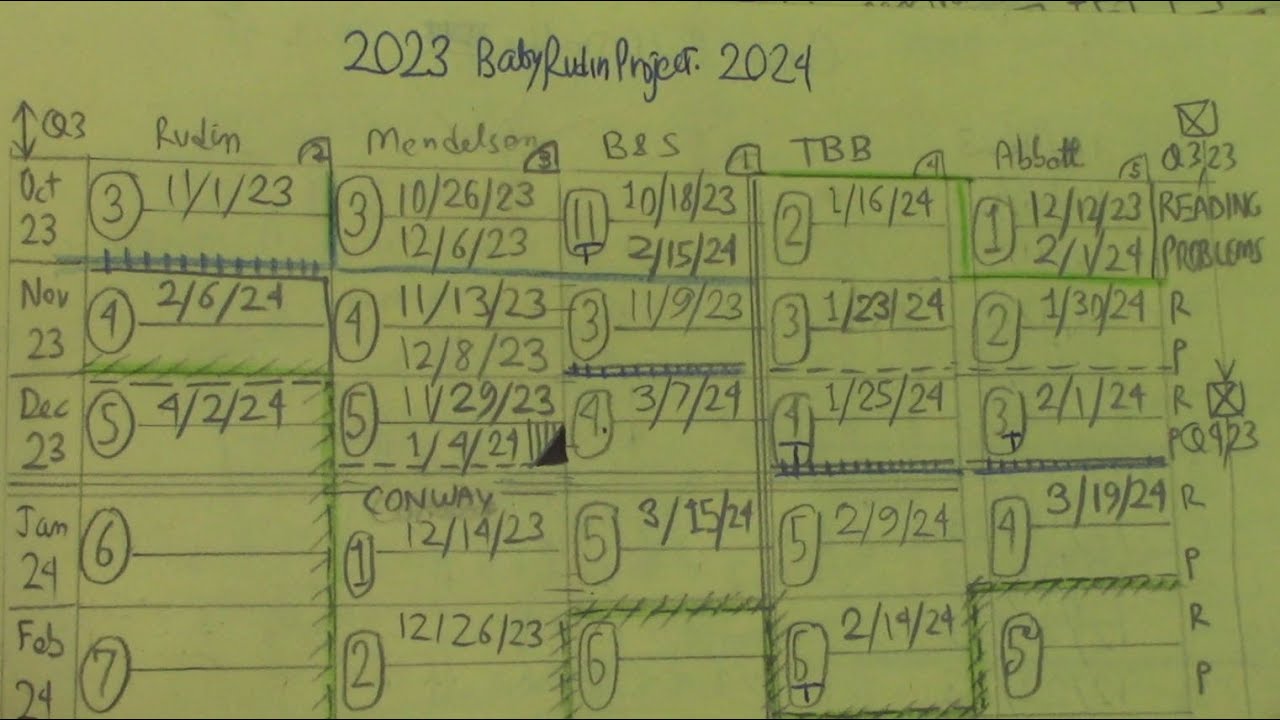 2023 Baby Rudin Project. 2024
Q3 Rudin 2 Mendelson 3 B&S 1 TBB 4 Abbott 5 Q3/23
Oct 23 3 11/1/23 3 10/26/23 11 10/18/23 2 1/16/24 1 12/12/23 READING
12/6/23 T 2/15/24 2/1/24 PROBLEMS
Nov 23 4 2/6/24 4 11/13/23 3 11/9/23 3 1/23/24 2 1/30/24 R
12/8/23 P
Dec 23 5 4/2/24 5 11/29/23 4. 3/7/24 4 1/25/24 3 2/1/24 R
1/4/24 T T P Q4/23
CONWAY
Jan 24 6 1 12/14/23 5 3/15/24 5 2/9/24 4 3/19/24 R
P
Feb 24 7 2 12/26/23 6 6 2/14/24 5 R
T P